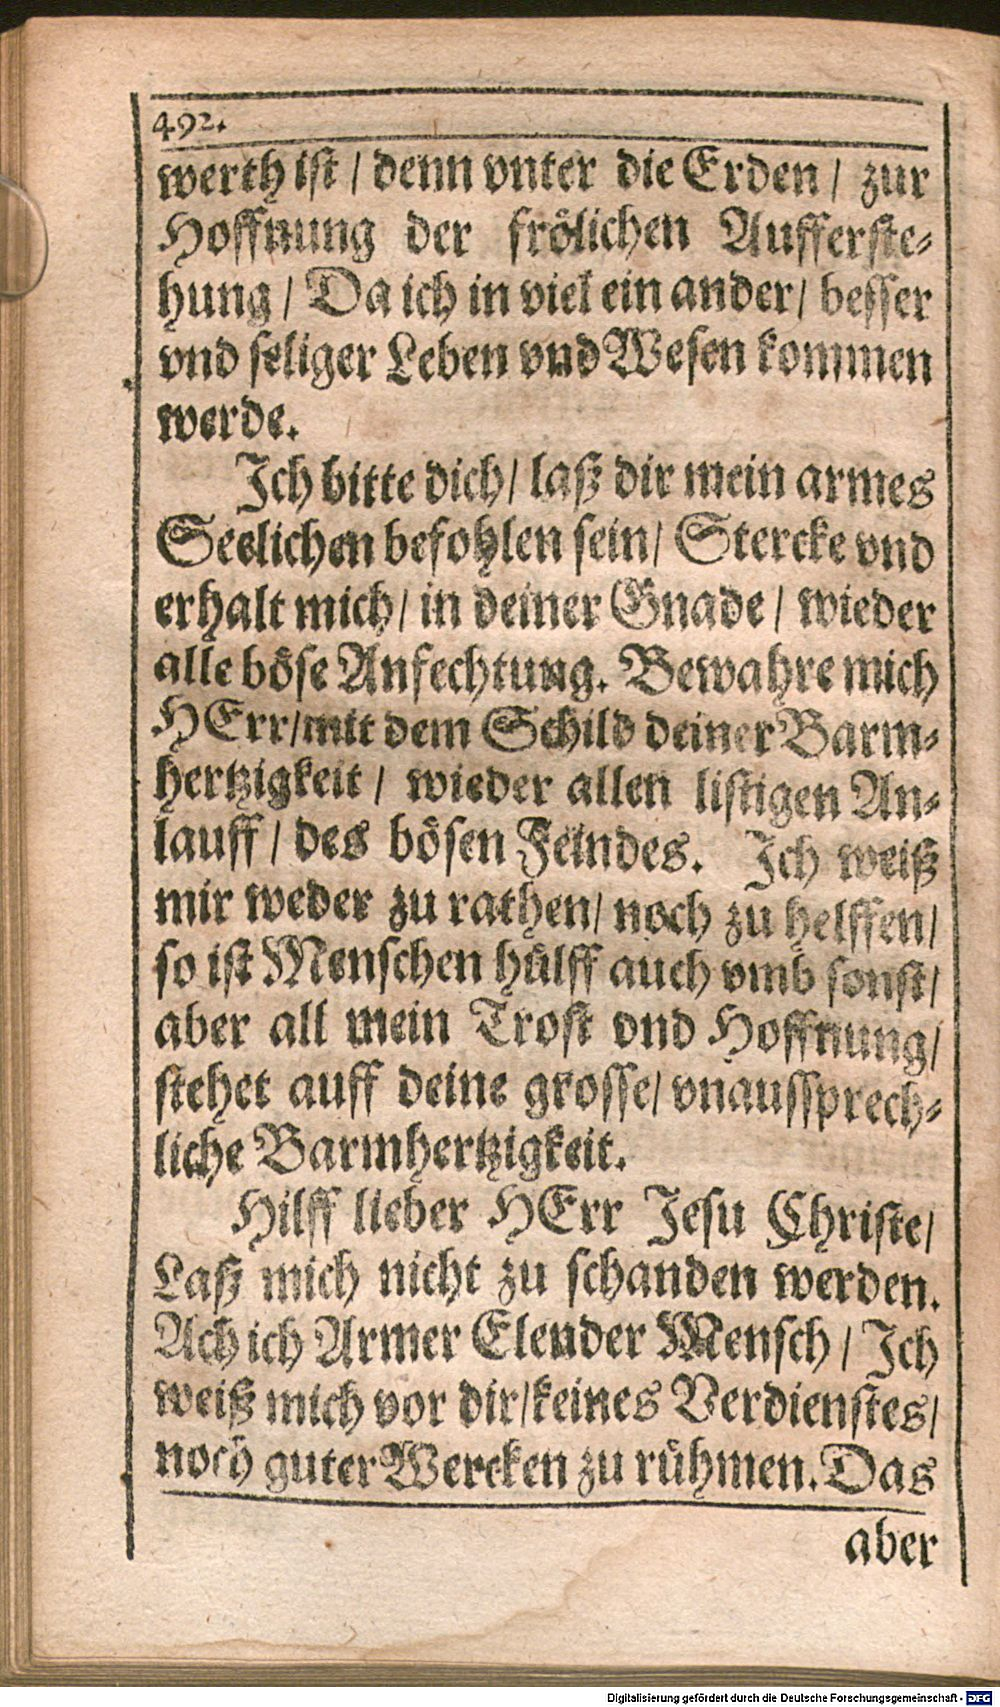 492.
werth ist / denn vnter die Erden / zur
Hoffnung der frölichen Aufferste-
hung / Da ich in viel ein ander / besser
vnd seliger Leben vnd Wesen kommen
werde.
Ich bitte dich / laß dir mein armes
Seelichen befohlen sein / Stercke vnd
erhalt mich / in deiner Gnade / wieder
alle böse Anfechtung. Bewahre mich
HErr / mit dem Schild deiner Barm-
hertzigkeit / wieder allen listigen An-
lauff / des bösen Feindes. Ich weiß
mir weder zu rathen / noch zu helffen /
so ist Menschen hülff auch vmb sonst /
aber all mein Trost vnd Hoffnung /
stehet auff deine grosse / vnaussprech-
liche Barmhertzigkeit.
Hilff lieber HErr Jesu Christe /
Laß mich nicht zu schanden werden.
Ach ich Armer Elender Mensch / Ich
weiß mich vor dir / keines Verdienstes /
noch guter Wercken zu rühmen. Das
aber
Digitalisierung gefördert durch die Deutsche Forschungsgemeinschaft - DFG